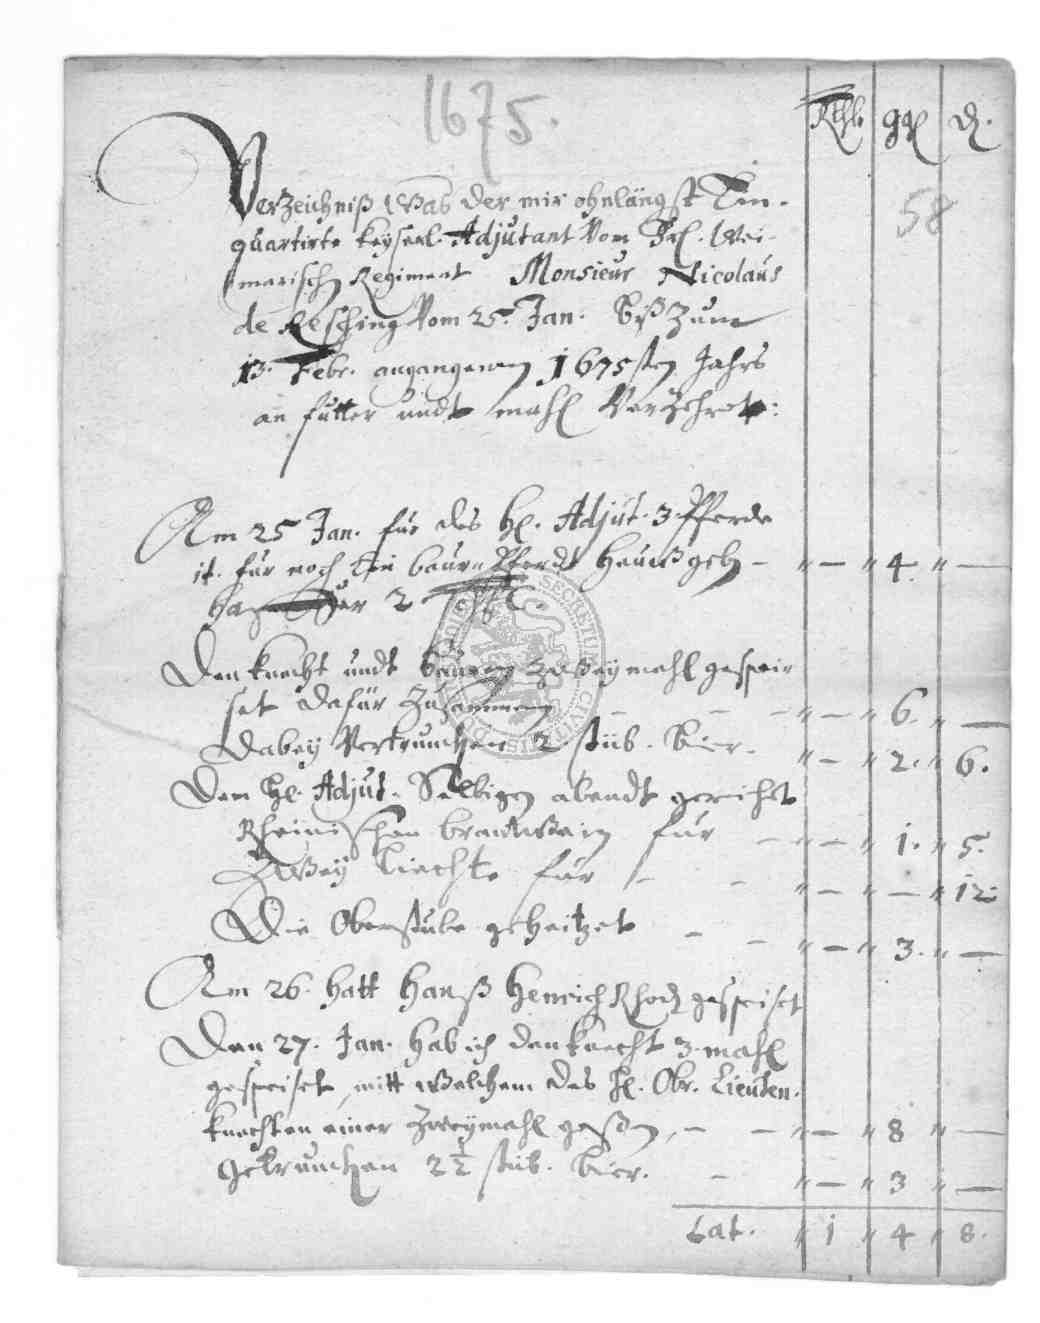 1675.
Rthl. ggl d.
58
Verzeichniß Waß der mir ohnlängst Ein-
quartirte keyserl. Adjutant Vom Frl. Wei-
marischen Regiment Monsieur Nicolaus
de Resching Vom 25. Jan. biß Zum
13. Febr. angangenen 1675sten Jahrs
an futter undt mahl Verzehret:
Am 25 Jan. für des H. Adjut. 3. Pferde
it. für noch Ein baurn Pferdt Hauußgeb - " — " 4. " —
2
Den knecht undt bauren Zweymahl gespei-
set dafür Zusammen - - - " — " 6. " —
Dabey Vertruncken 2. stüb. bier. " — " 2. " 6.
Dem H. Adjut. Selbigen abendt gereichet
Rheinischen brantwein für - " — " 1. " 5.
Zwey Liechte für - - " — " — " 12.
Die Oberstube geheitzet - - " — " 3. " —
Am 26. hatt Hanß Henrich Rhode gespeiset
Den 27. Jan. Hab ich den knecht 3. mahl
gespeiset, mitt welchem des H. Obr. Lieuten.
knechten einer Zweymahl geßen, - - " — " 8 " —
Getruncken 2½ stüb. bier. - " — " 3 " —
Lat. " 1 " 4 " 8.
SECRETUM CIVITATIS